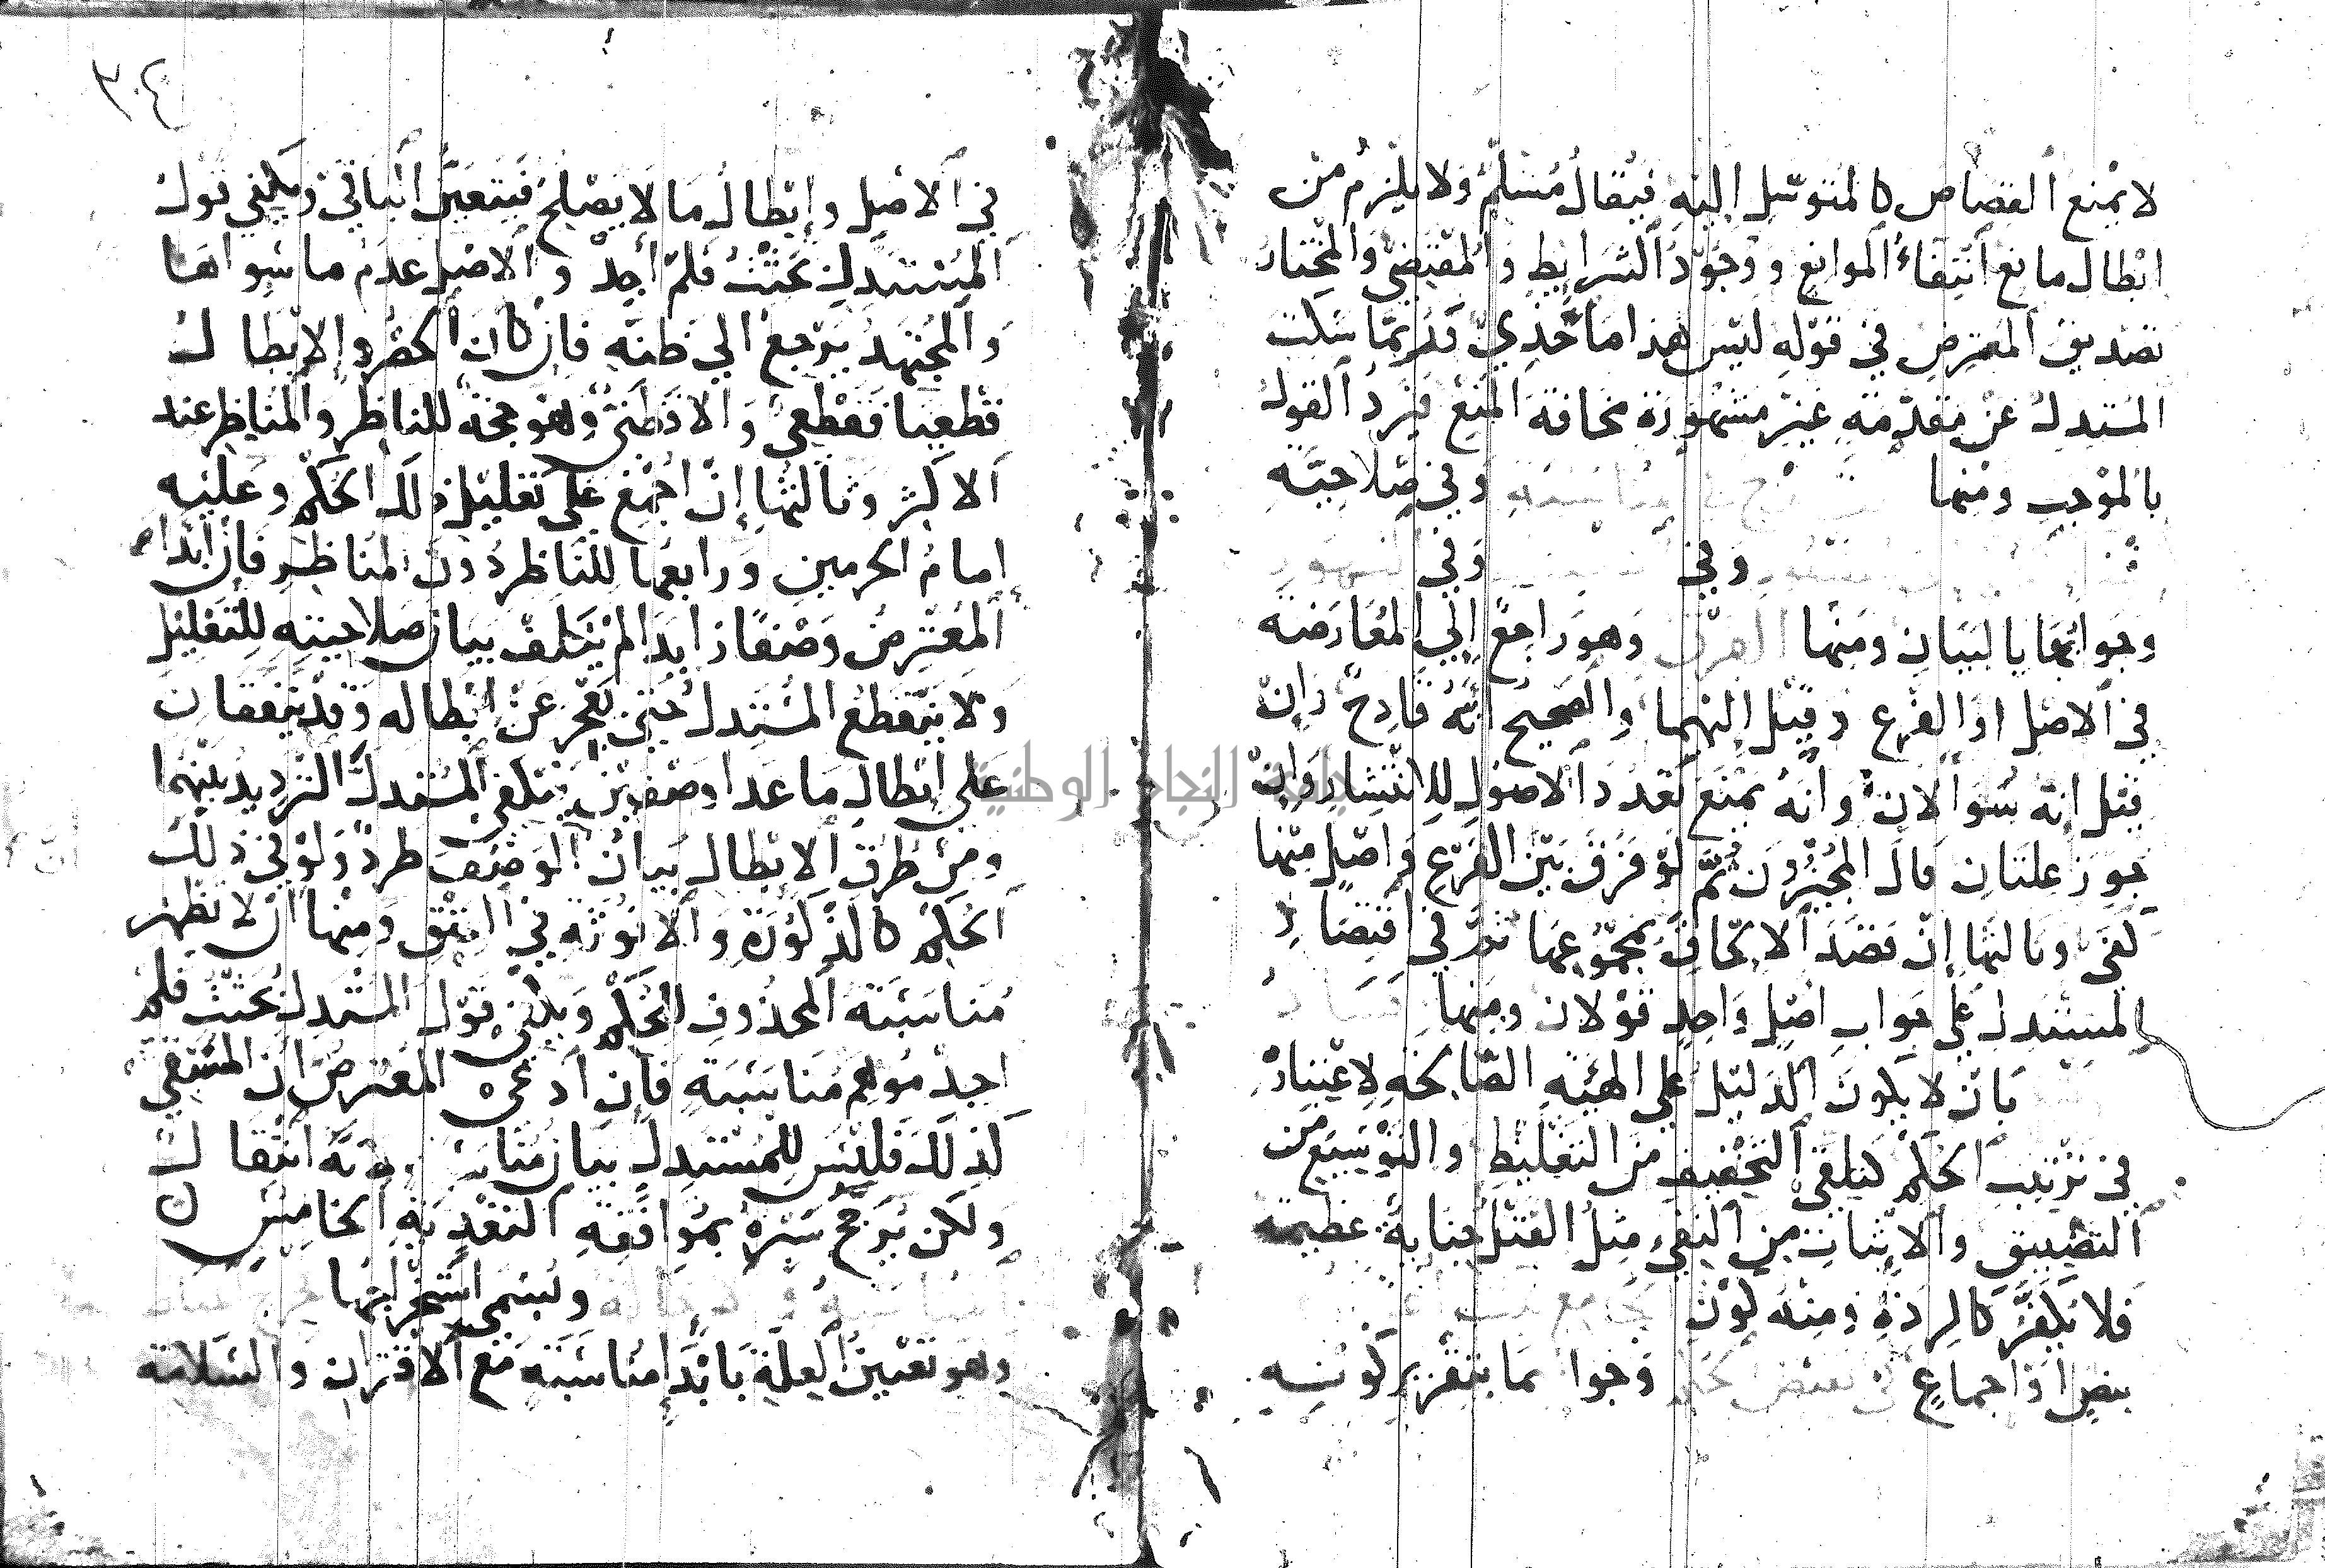 لا يمنع القصاص كالمتوسل اليه فيقال مُسَلّمٌ ولا يلزمُ مِن
ابْطال مانع اَنتِفاءُ الموانع ووجُودُ الشرايط والمقتضي والمختار
تصديق المعترض في قوله ليس هذا مأخذي وربما سكت
المستدل عن مقدمةٍ غير مشهورة مخافة المنع فيرد القول
بالموجب ومنها وفي صلاحيته
وفي وفي
وجوابها بالبيان ومنها الفرق وهو راجع إلى المعارضة
في الاصل او الفرع وقيل اليهما والصحيح انه قادح وان
قيل انه سوالان وانه يمنع تعدد الاصول للانتشار وان
جوز علتان قال المجيزون ثم لو فرق بين الفرع واصل منها
كفى وثالثها إن قصد الالحاق بمجموعها ثم في اقتصار
المستدل على جواب اصل واحد قولان ومنها فساد
بان لا يكون الدليل على الهيئة الصالحة لاعتباره
في ترتيب الحكم كتلقي التخفيف من التغليظ والتوسيع من
التضييق والاثبات من النفي مثل القتل جناية عظيمة
فلا يكفر كالردة ومنه كون
بنص او اجماع في نقيض الحكم وجوابهما بتقرير كونه
٣٠٤
في الاصل وإبطال ما لا يصلح فيتعين الباقي ويكفي قول
المستدل بحثت فلم أجد والاصل عدم ما سواها
والمجتهد يرجع الي ظنه فان كان الحصر والإبطال
قطعيا فقطعي والا فظني وهو حجة للناظر والمناظر عند
الاكثر وثالثها إن اُجمع على تعليل ذلك الحكم وعليه
إمام الحرمين ورابعها للناظر دون المناظر فإن ابدا
المعترض وصفًا زايدا لم يكلف بيان صلاحيته للتعليل
ولا ينقطع المستدل حتى يعجز عن ابطاله وقد يتفقان
على ابطال ما عدا وصفين فيكفي المستدل الترديد بينهما
ومن طرق الابطال بيان الوصف طرد ولو في ذلك
الحكم كالذكورة والانوثة في العتق ومنها ان لا تظهر
مناسبة المحذوف للحكم ويكفي قول المستدل بحثت فلم
اجد موهم مناسبة فان ادعى المعترض ان المستبقي
كذلك فليس للمستدل بيان مناسبته لانه انتقال
ولكن يرجح سبره بموافقة التعدية الخامس
ويسمى استخراجها
وهو تعيين العلة بابدا مناسبة مع الاقتران والسلامة
جامعة النجاح الوطنية